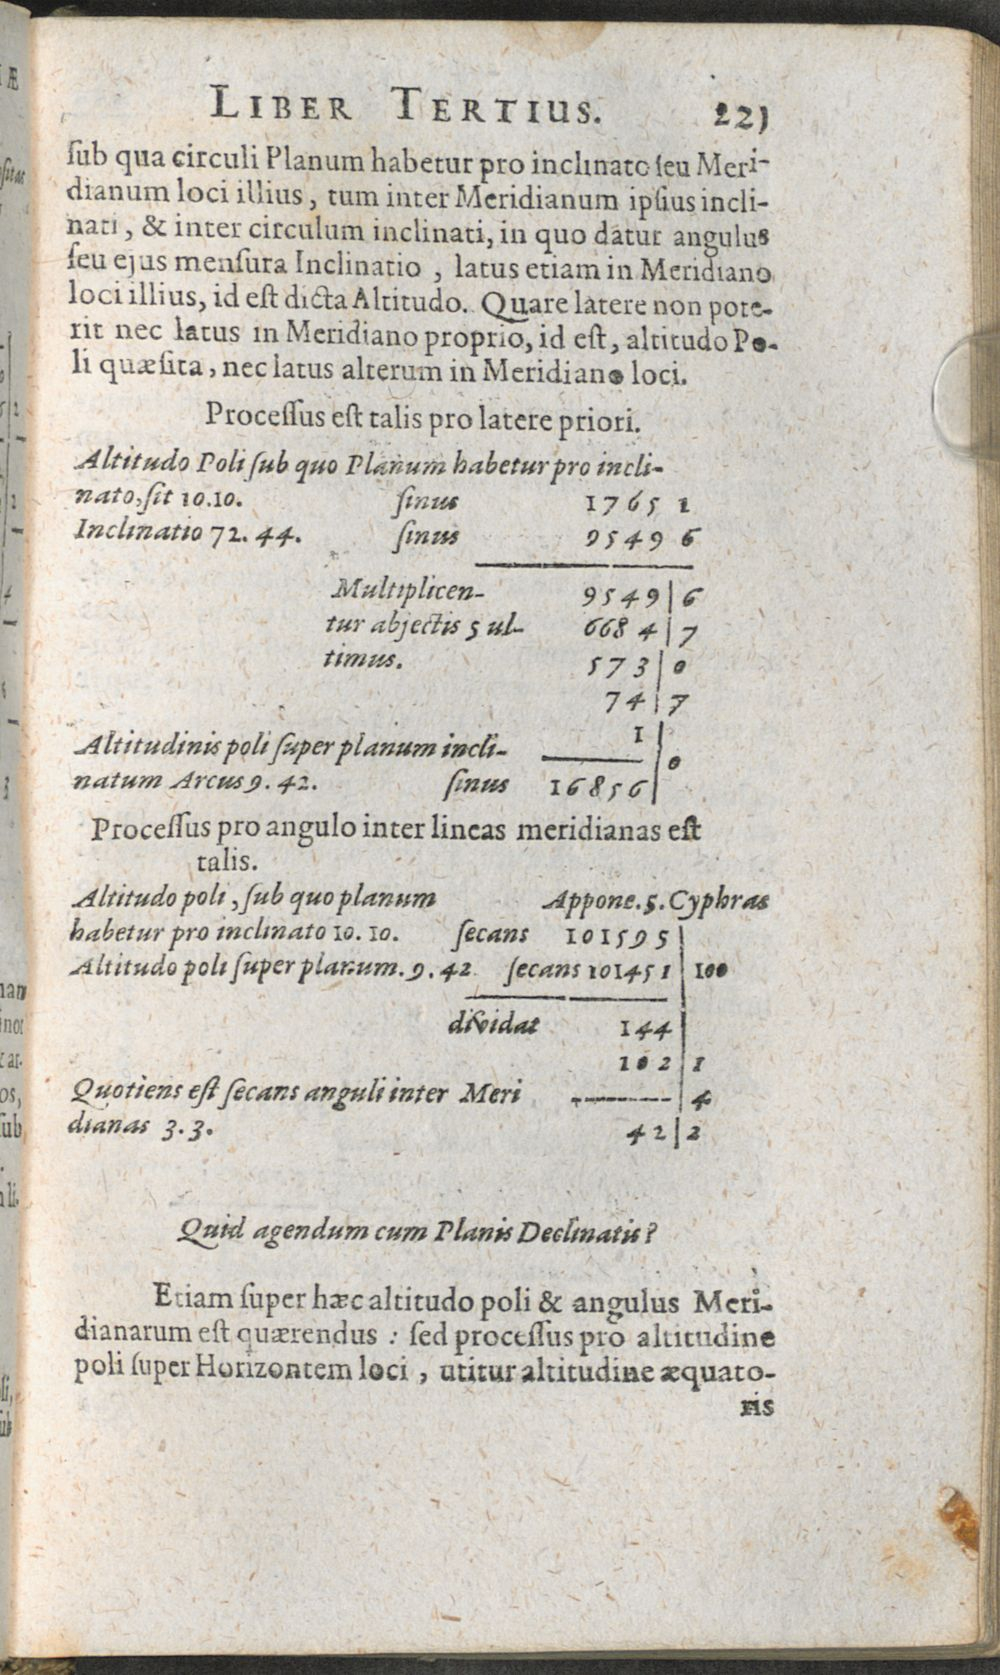 LIBER TERTIUS. 221
ſub qua circuli Planum habetur pro inclinato ſeu Meri-
dianum loci illius, tum inter Meridianum ipſius incli-
nati, & inter circulum inclinati, in quo datur angulus
ſeu ejus menſura Inclinatio, latus etiam in Meridiano
loci illius, id eſt dicta Altitudo. Quare latere non pote-
rit nec latus in Meridiano proprio, id eſt, altitudo Po-
li quæſita, nec latus alterum in Meridiano loci.
Proceſſus eſt talis pro latere priori.
Altitudo Poli ſub quo Planum habetur pro incli-
nato, ſit 10.10. ſinus 1765 1
Inclinatio 72.44. ſinus 9549 6
Multiplicen- 9549|6
tur abjectis 5 ul- 6684|7
timus. 573|0
74|7
1|
Altitudinis poli ſuper planum incli- 0
natum Arcus 9.42. ſinus 16856|
Proceſſus pro angulo inter lineas meridianas eſt
talis.
Altitudo poli, ſub quo planum Appone.5.Cyphras
habetur pro inclinato 10.10. ſecans 101595|
Altitudo poli ſuper planum. 9.42 ſecans 101451|100
dividat 144|
102|1
Quotiens eſt ſecans anguli inter Meri |4
dianas 3.3. 42|2
Quid agendum cum Planis Declinatis?
Etiam ſuper hæc altitudo poli & angulus Meri-
dianarum eſt quærendus: ſed proceſſus pro altitudine
poli ſuper Horizontem loci, utitur altitudine æquato-
ris